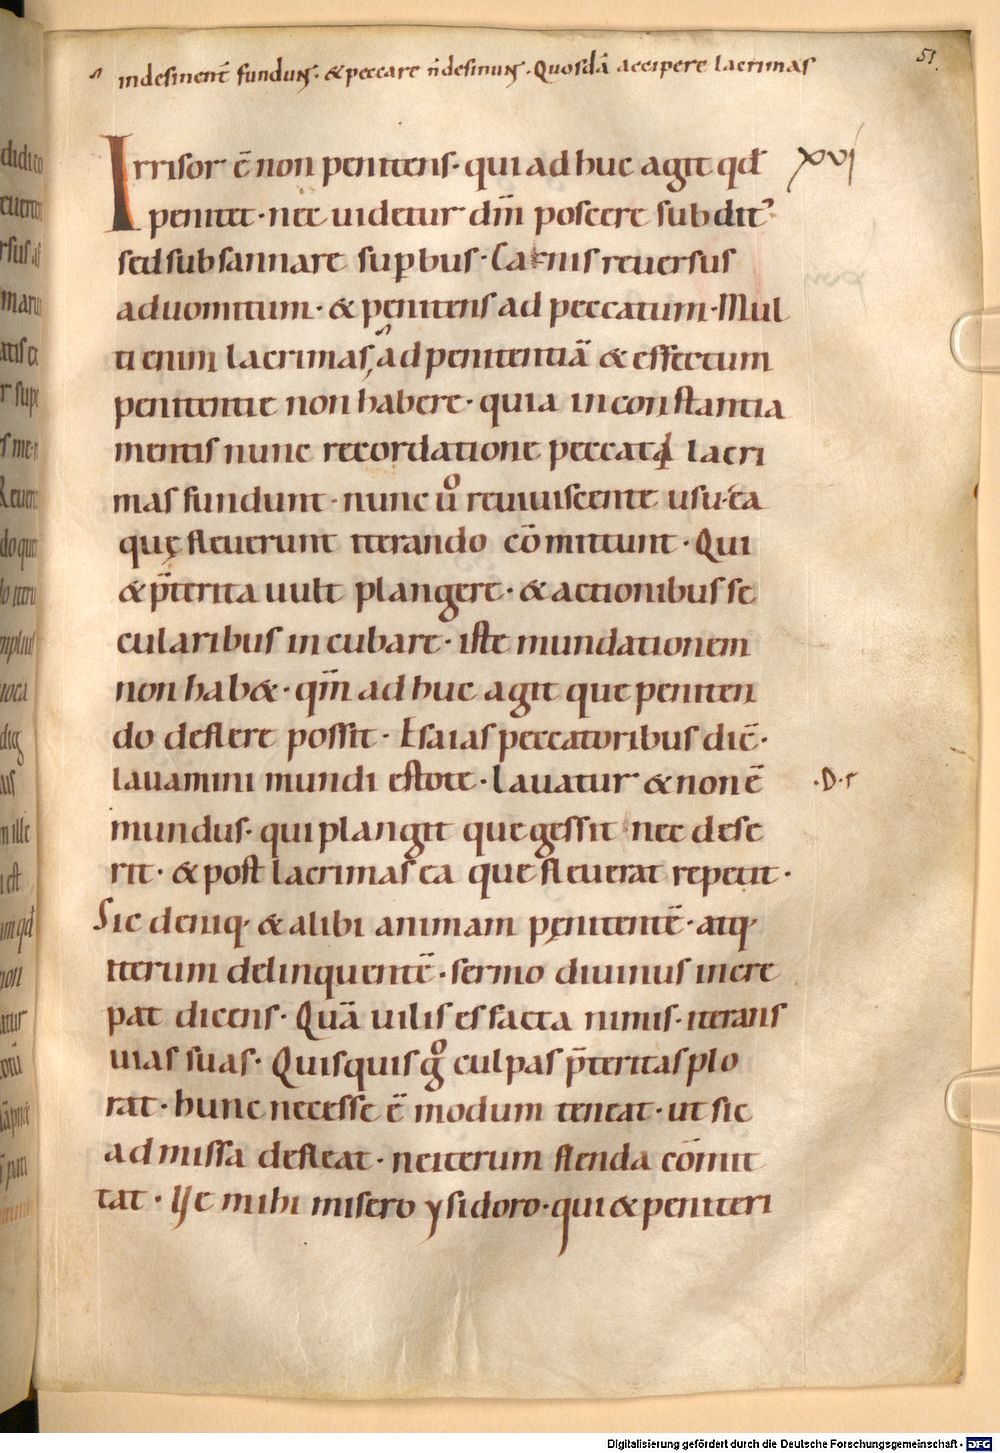 51.
indesinent̄ funduɳ̄t· & peccare n̄ desinuɳ̄t· Quosdā accipere lacrimas
Irrisor ē non penitens· qui adhuc agit qđ xvi
penitet· nec uidetur dm̄ poscere subditꝰ
sed subsannare supbus· Canis reuersus
aduomitum· & pęnitens ad peccatum· Mul
ti enim lacrimas, ad penitentiā & effectum
penitentie non habere· quia inconstantia
mentis nunc recordatione peccati lacri
mas fundunt· nunc uͦ reuiuiscente usu· ea
quę fleuerunt iterando cōmittunt· Qui
& p̄terita uult plangere· & actionibus se
cularibus incubare· iste mundationem
non hab&· qm̄ adhuc agit que peniten
do deflere possit· Esaias peccatoribus dic̄·
lauamini mundi estote· Lauatur & non ē ·D·r
mundus· qui plangit que gessit nec dese
rit· & post lacrimas ea que fleuerat repetit·
Sic deniq· & alibi animam pęnitentē· atq·
iterum delinquentē· sermo diuinus incre
pat dicens· Quā uilis es facta nimis· iterans
uias suas· Quisquis gͦ culpas p̄teritas plo
rat· hunc necesse ē modum teneat· ut sic
admissa defleat· ne iterum flenda cōmit
tat· Ve mihi misero ysidoro· qui & peniteri
Digitalisierung gefördert durch die Deutsche Forschungsgemeinschaft - DFG